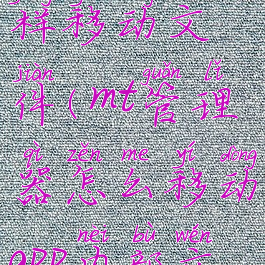 样移动文
jiàn guǎn lǐ
件(mt管理
qì zěn me yí dòng
器怎么移动
nèi bù wén
app内部文